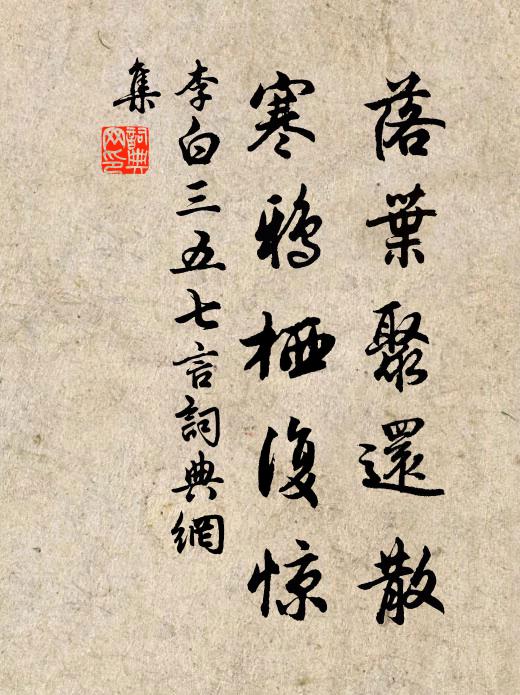 落葉聚還散
寒鴉栖復惊
李白三五七言詞典網
集
詞典网印